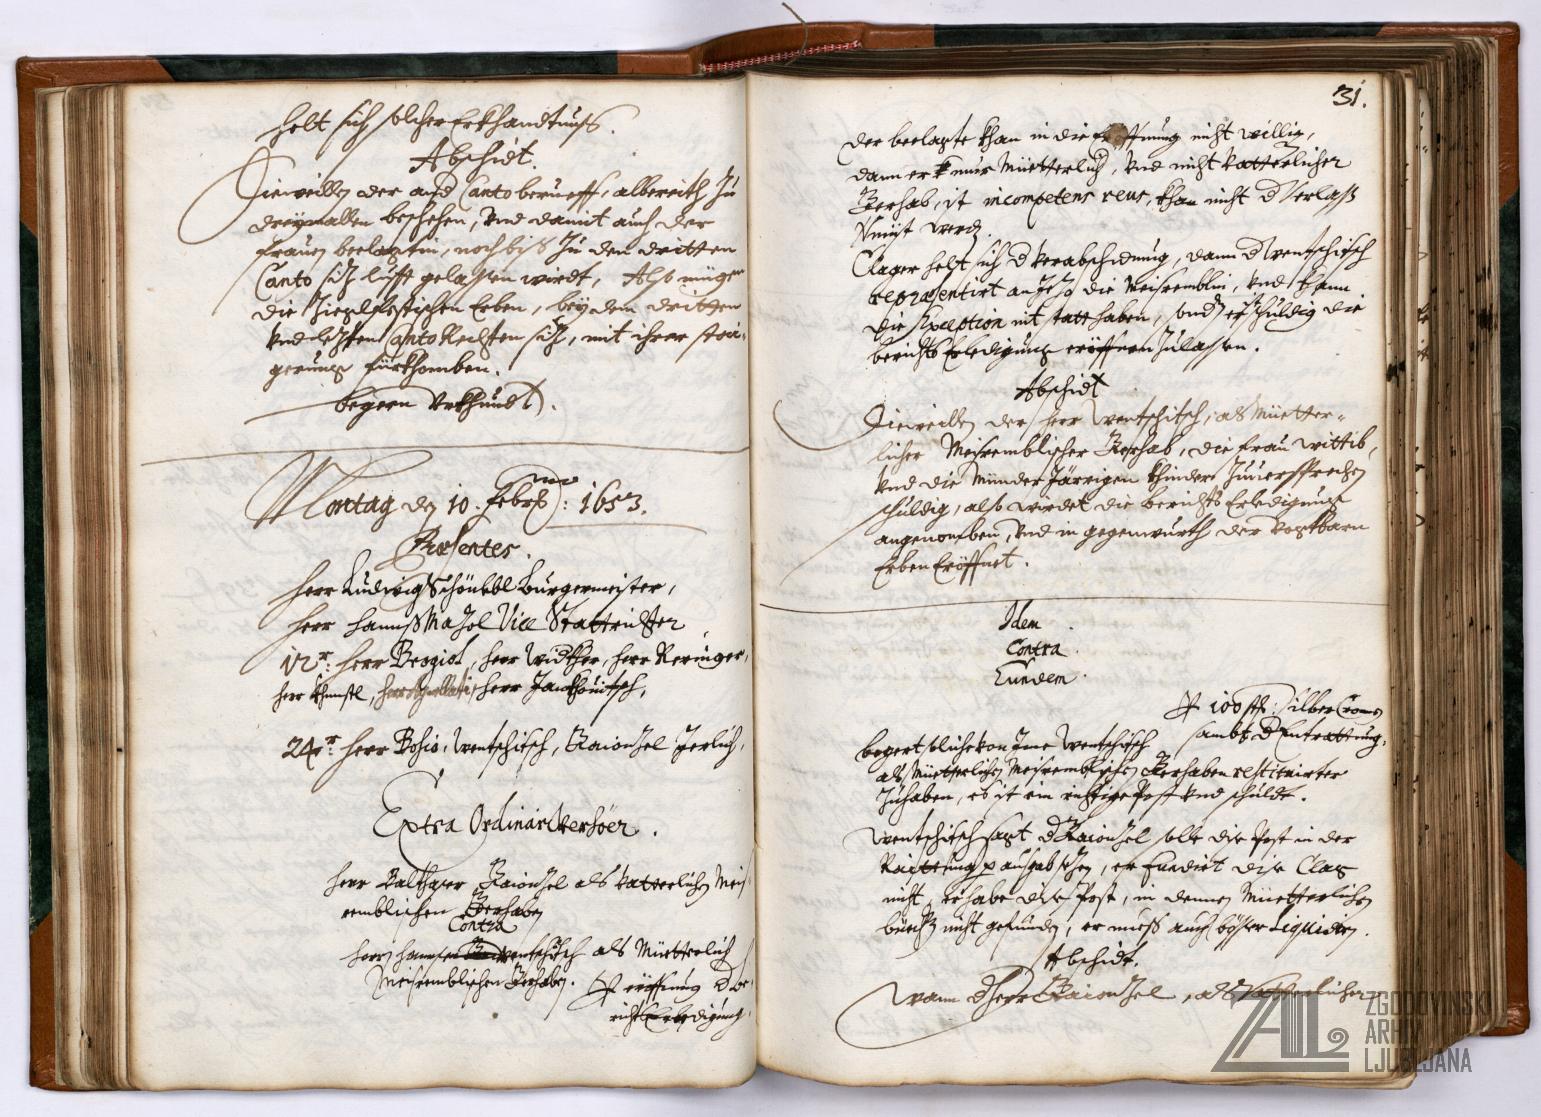 helt sich solcher Erkhandtnuß.
Abschidt.
Dieweillen der auf Canto beruefft, albereith zu
dreymallen beschehen, und damit auch der
Frauen beclagtin, noch biß zu dem dritten
Canto sich lufft gelassen wierdt, Also mügen
die Zieglfestischen Erben, bey dem dritten
und lezten Canto Rechten sich, mit ihrer stei-
gerung fürkhomben.
begern Urkhundt.
Montag den 10. Febr: 1653.
Præsentes.
Herr Ludwig Schönbl Burgermeister,
Herr Hannß Mazol Vice Stattrichter
12r: Herr Bosgiol, Herr Widther, Herr Reringer,
Herr Khunstl, Herr Jankhouitsch,
24r: Herr Bosio, Wentschitsch, Raiouzel Jerlich,
Extra Ordinari Verhöer.
Herr Balthaser Raiouzel als vatterlichen Meis-
remblischen Gerhaben
Contra
Herrn Hansen Wentschitsch als Müetterlich
Meisremblischen Gerhaben. Pto eröffnung d be-
richts Erledigung.
31.
Der beclagte khan in die Eröffnung nicht willig,
dann er nur Müetterlich, und nicht vatterlicher
Gerhab, ist incompetens reus, khan nicht d Verlaß
werd.
Clager helt sich d verabschidung, dann d Wentschitsch
repræsentiert anjezo die Meisremblin, und khann
die Exception nit statt haben, sond er schuldig die
berichts Erledigung eröffnen zulassen.
Abschidt
Dieweillen der Herr Wentschitsch, als Müetter-
licher Meisremblischer Gerhab, die Frau Wittib,
und die Münder Järrigen Khinder zuuersprechen
schuldig, also wirdet die berichts Erledigung
angenomben, und in gegenwurth der
Erben Eröffnet.
Idem
Contra
Eundem.
Pto 100 Silber Cronen
sambt d Entrattung.
begert solche von Ime Wentschitsch
als Müetterlichen Meisremblischen Gerhaben restituirter
zuhaben, es ist ein richtige Post und schuldt.
Wentschitsch sagt d Raiouzel solle dise Post in der
Raittung p ausgab sezen, er fundirt dise Clag
nicht, er habe dise Post, in denen Müetterlichen
büech nicht gefunden, er mueß auch bösser Liquidirn.
Abschidt.
Wann d Herr Raiouzel, als Vatterlicher
ZGODOVINSKI
ARHIV
LJUBLJANA